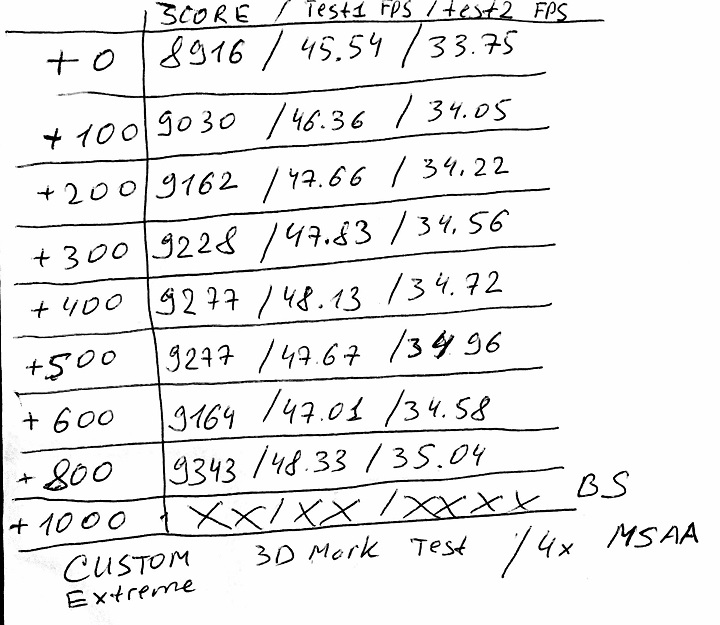 SCORE / Test1 FPS / test2 FPS
+0 8916 / 45.54 / 33.75
+100 9030 / 46.36 / 34.05
+200 9162 / 47.66 / 34.22
+300 9228 / 47.83 / 34.56
+400 9277 / 48.13 / 34.72
+500 9277 / 47.67 / 34 96
+600 9164 / 47.01 / 34.58
+800 9343 / 48.33 / 35.04
+1000 XX/XX/XXXX BS
CUSTOM 3D Mark Test / 4x MSAA
Extreme